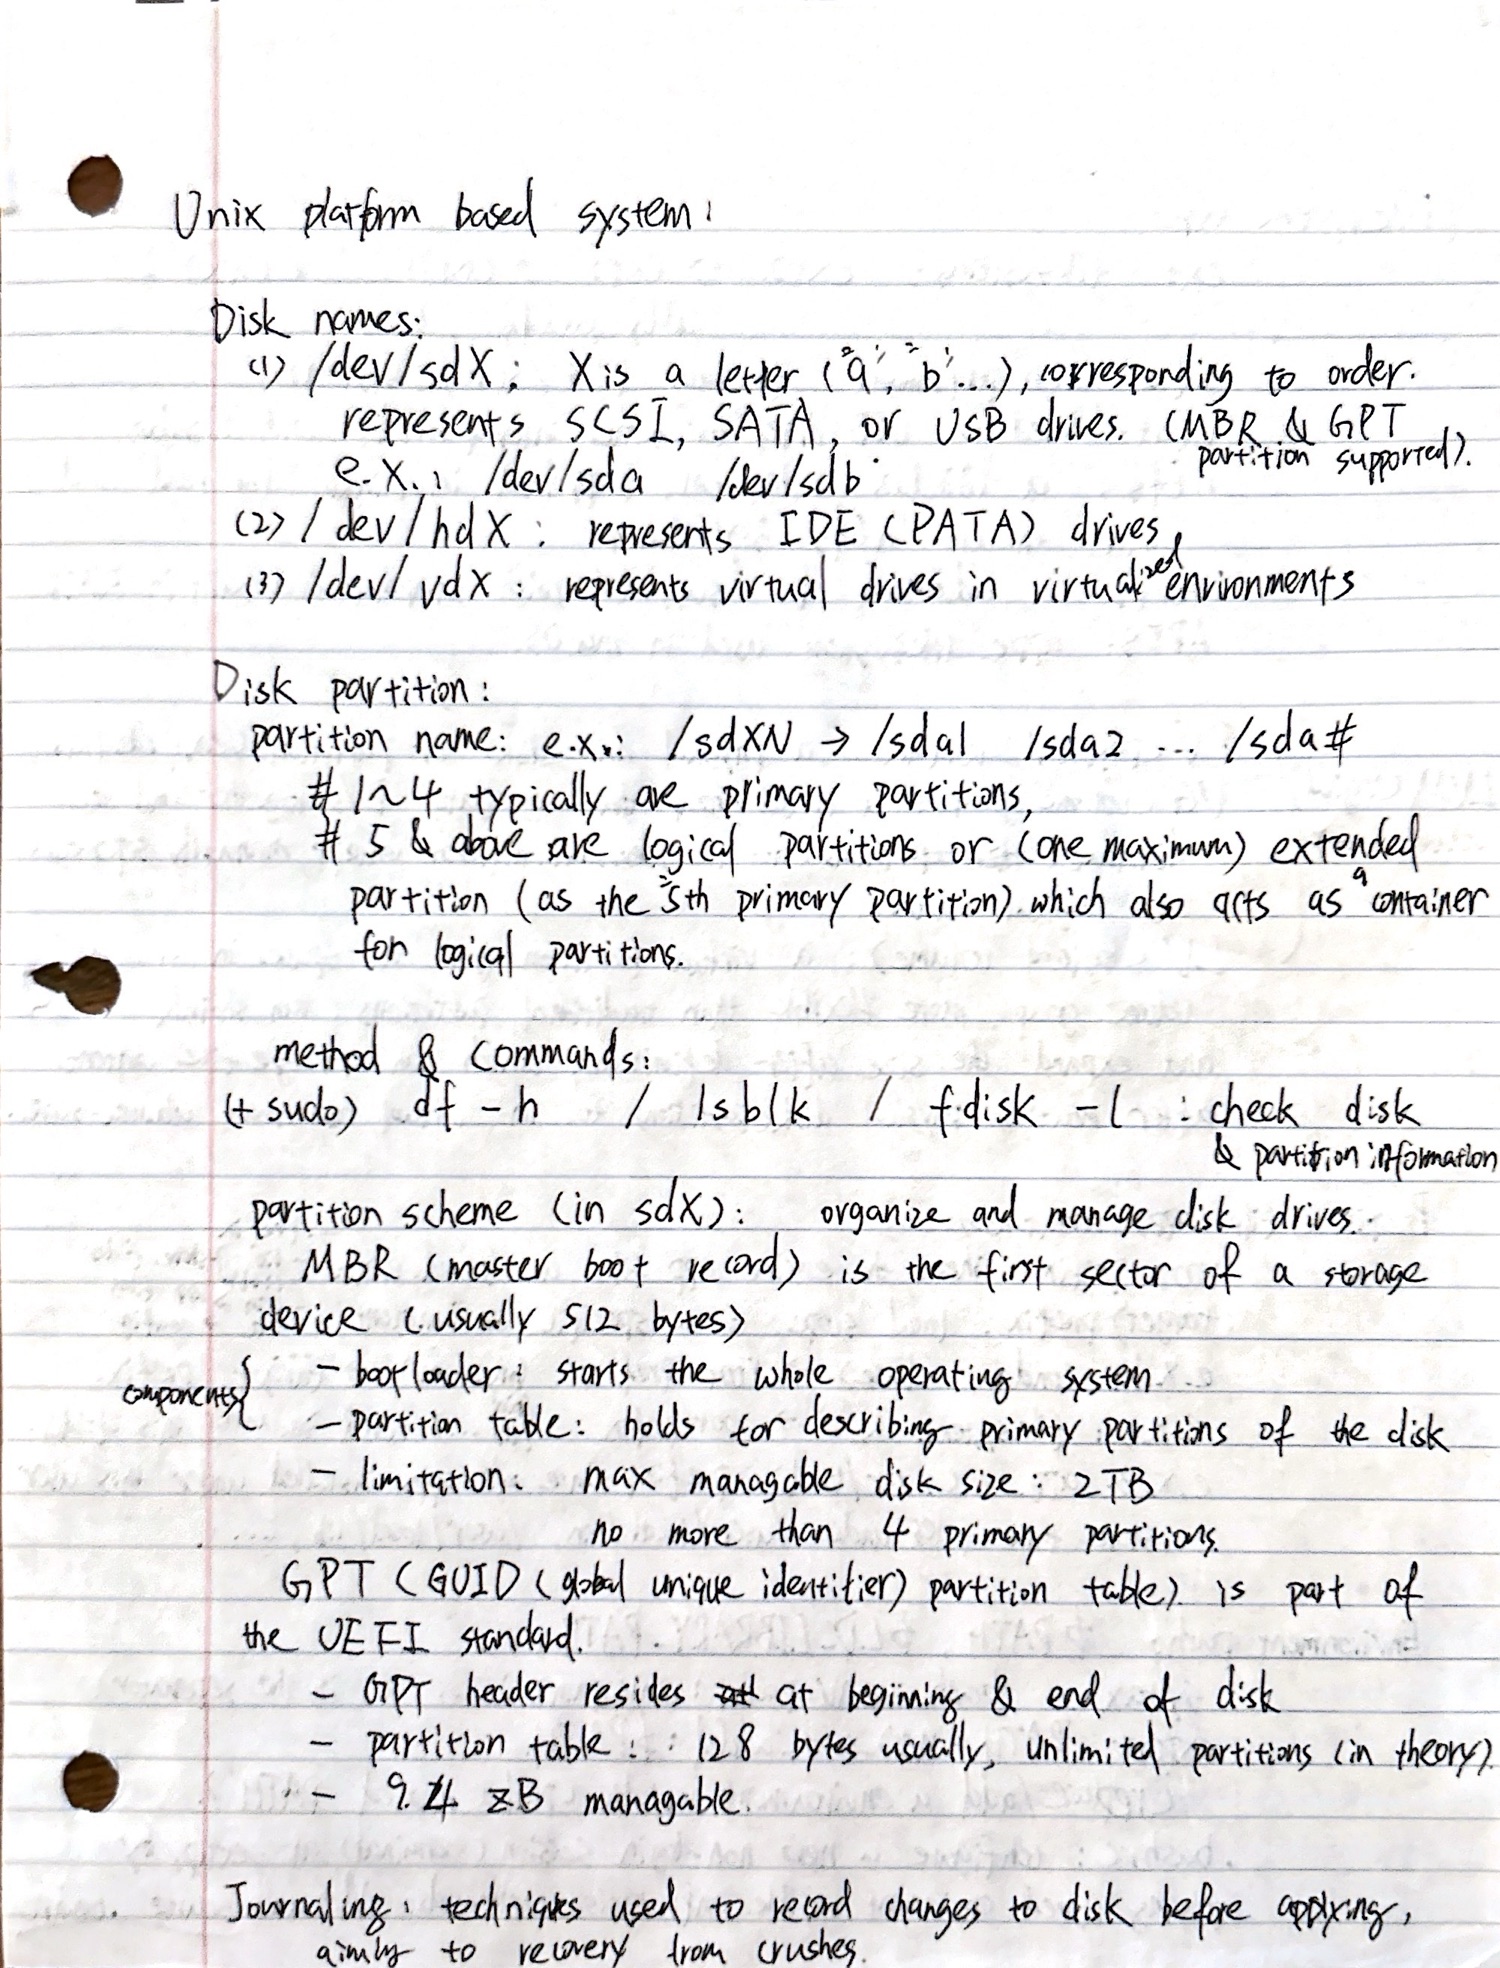 Unix platform based system:
Disk names:
(1) /dev/sdX: X is a letter ("a", "b"...), corresponding to order.
represents SCSI, SATA, or USB drives. (MBR & GPT
partition supported).
e.x.: /dev/sda /dev/sdb
(2) /dev/hdX: represents IDE (PATA) drives
(3) /dev/vdX: represents virtual drives in virtualized environments
Disk partition:
partition name: e.x.: /sdXN → /sda1 /sda2 ... /sda#
# 1~4 typically are primary partitions,
# 5 & above are logical partitions or (one maximum) extended
partition (as the "5th primary partition) which also acts as a container
for logical partitions.
method & commands:
(+ sudo) df -h / lsblk / fdisk -l : check disk
& partition information
partition scheme (in sdX): organize and manage disk drives.
MBR (master boot record) is the first sector of a storage
device (usually 512 bytes)
components { - bootloader: starts the whole operating system
- partition table: holds for describing primary partitions of the disk
- limitation: max managable disk size: 2TB
no more than 4 primary partitions.
GPT (GUID (global unique identifier) partition table) is part of
the UEFI standard.
- GPT header resides at beginning & end of disk
- partition table: 128 bytes usually, unlimited partitions (in theory)
- 9.4 ZB managable.
Journaling: techniques used to record changes to disk before applying,
to recovery from crushes.